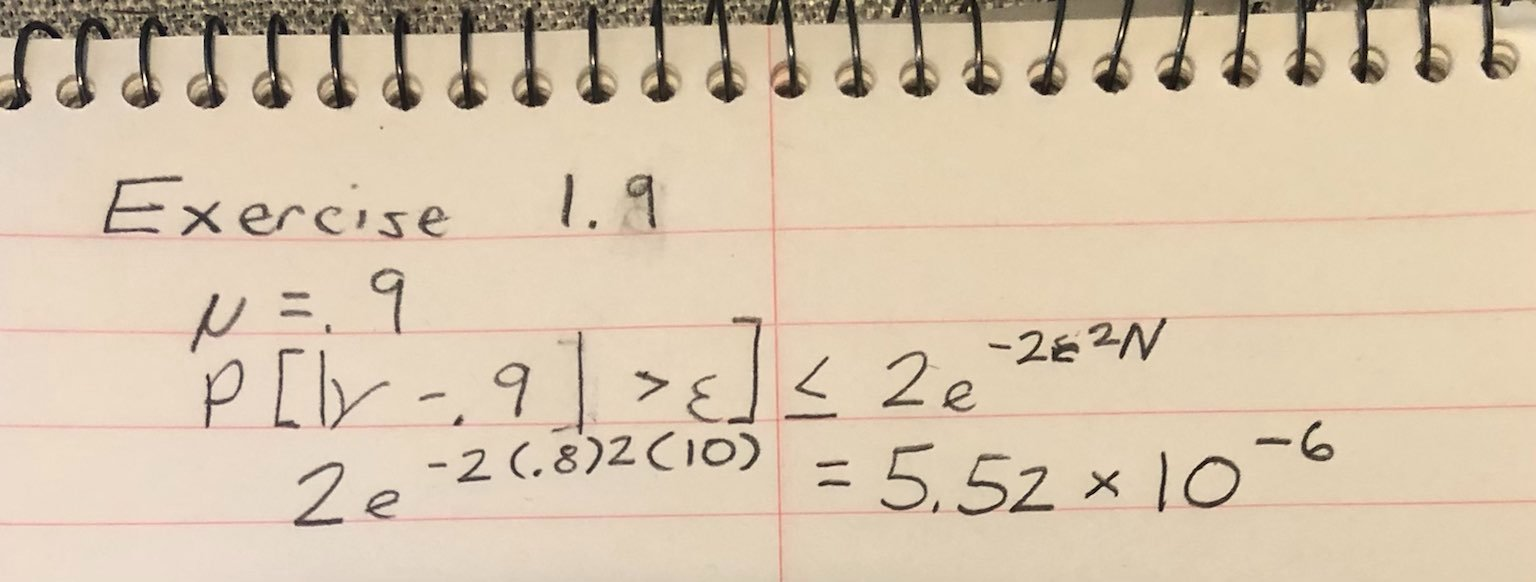 Exercise 1.9
μ = .9
P[|ν - .9| > ε] ≤ 2e^{-2ε²N}
2e^{-2(.8)²(10)} = 5.52 × 10^{-6}